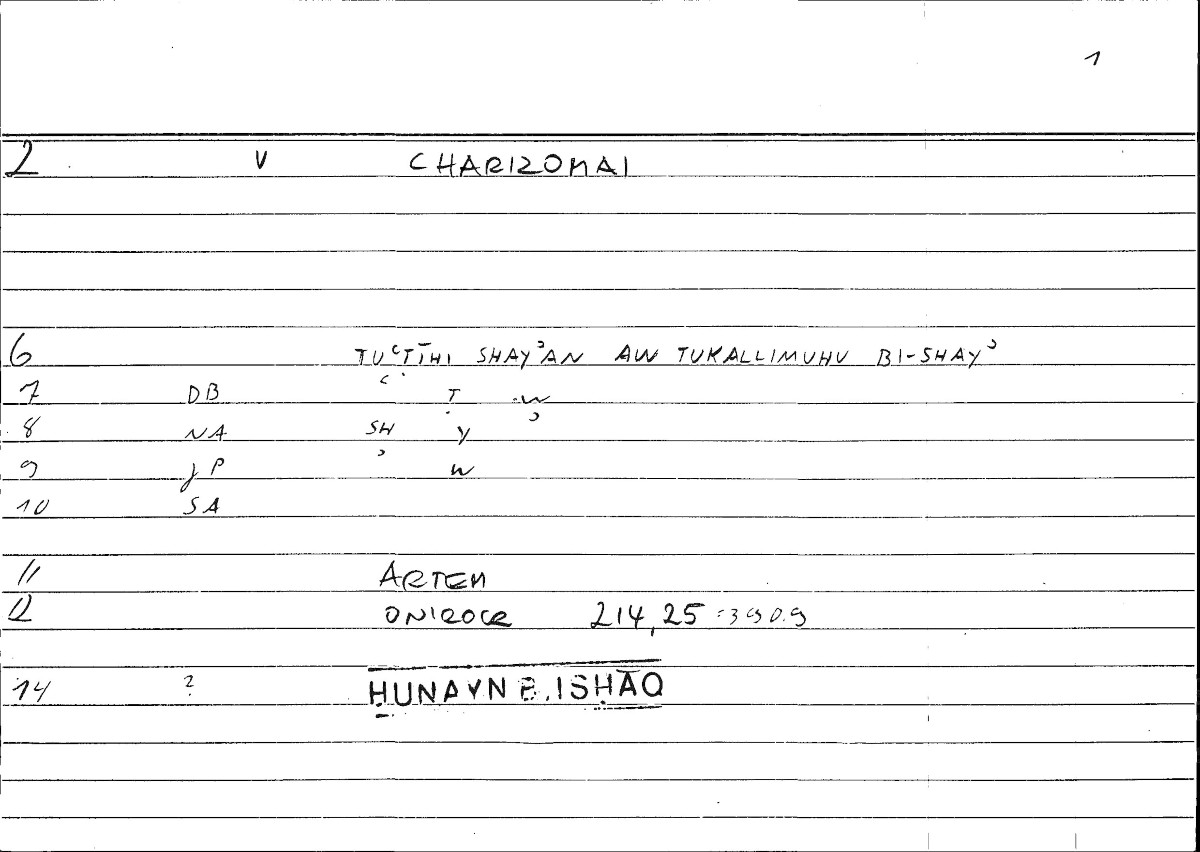 1
2 V CHARIZOMAI
6 TUʿṬĪHI SHAYʾAN AW TUKALLIMUHU BI-SHAYʾ
7 DB ʿ Ṭ W
8 NA SH Y ʾ
9 JP ʾ W
10 SA
11 ARTEM
12 ONIROCR 214,25 = 390.9
14 ? ḤUNAYN B. ISḤĀQ